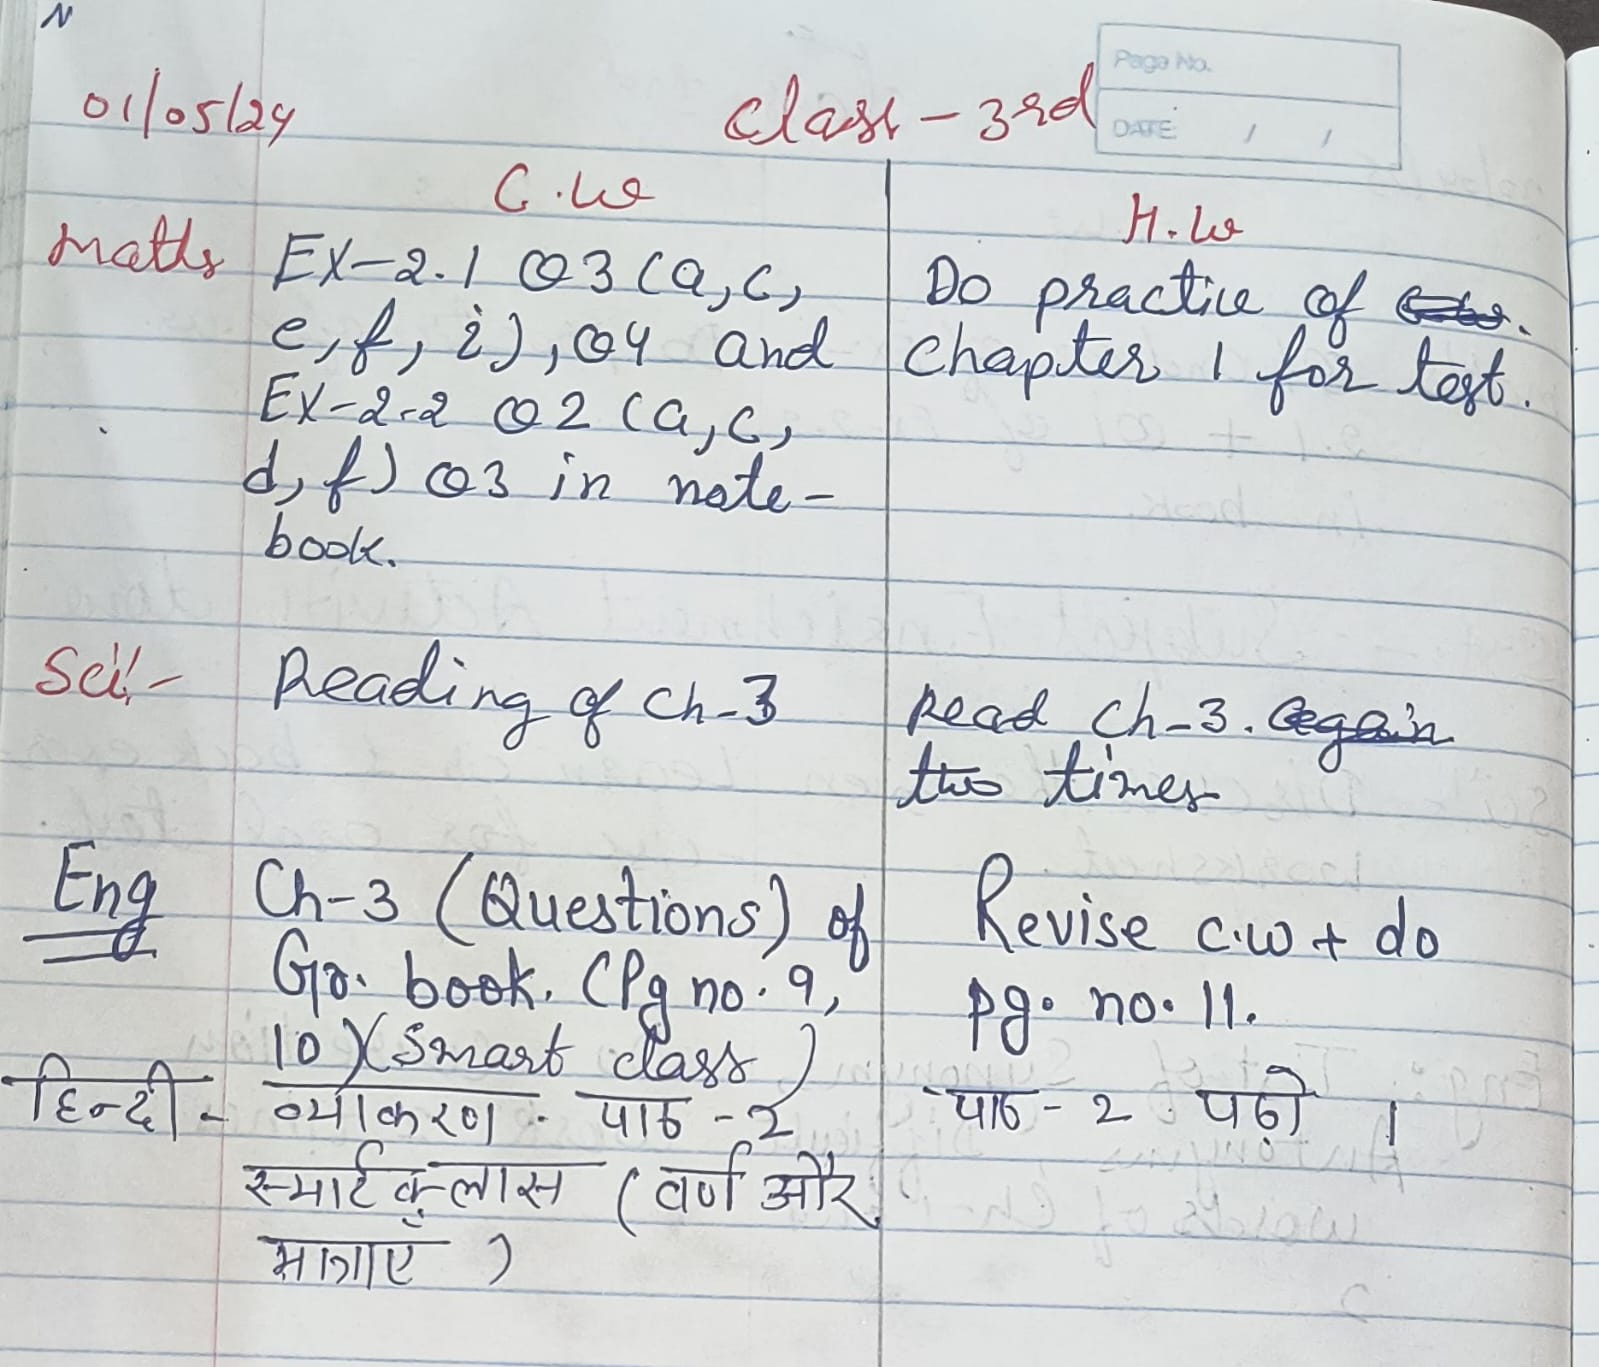 N
Page No.
01/05/24 Class - 3rd
DATE / /
C.W
H.W
Maths Ex-2.1 Q3 (a,c, Do practice of
e,f,i), Q4 and Chapter 1 for test.
Ex-2.2 Q2 (a,c,
d,f) Q3 in note-
book.
Sci:- Reading of Ch-3 Read Ch-3. again
two times
Eng Ch-3 (Questions) of Revise c.w + do
Gr. book. (Pg no. 9, pg. no. 11.
10) (Smart class)
हिन्दी - व्याकरण - पाठ - 2 पाठ - 2 पढ़ो ।
स्मार्ट क्लास ( वर्ण और
मात्राएँ )